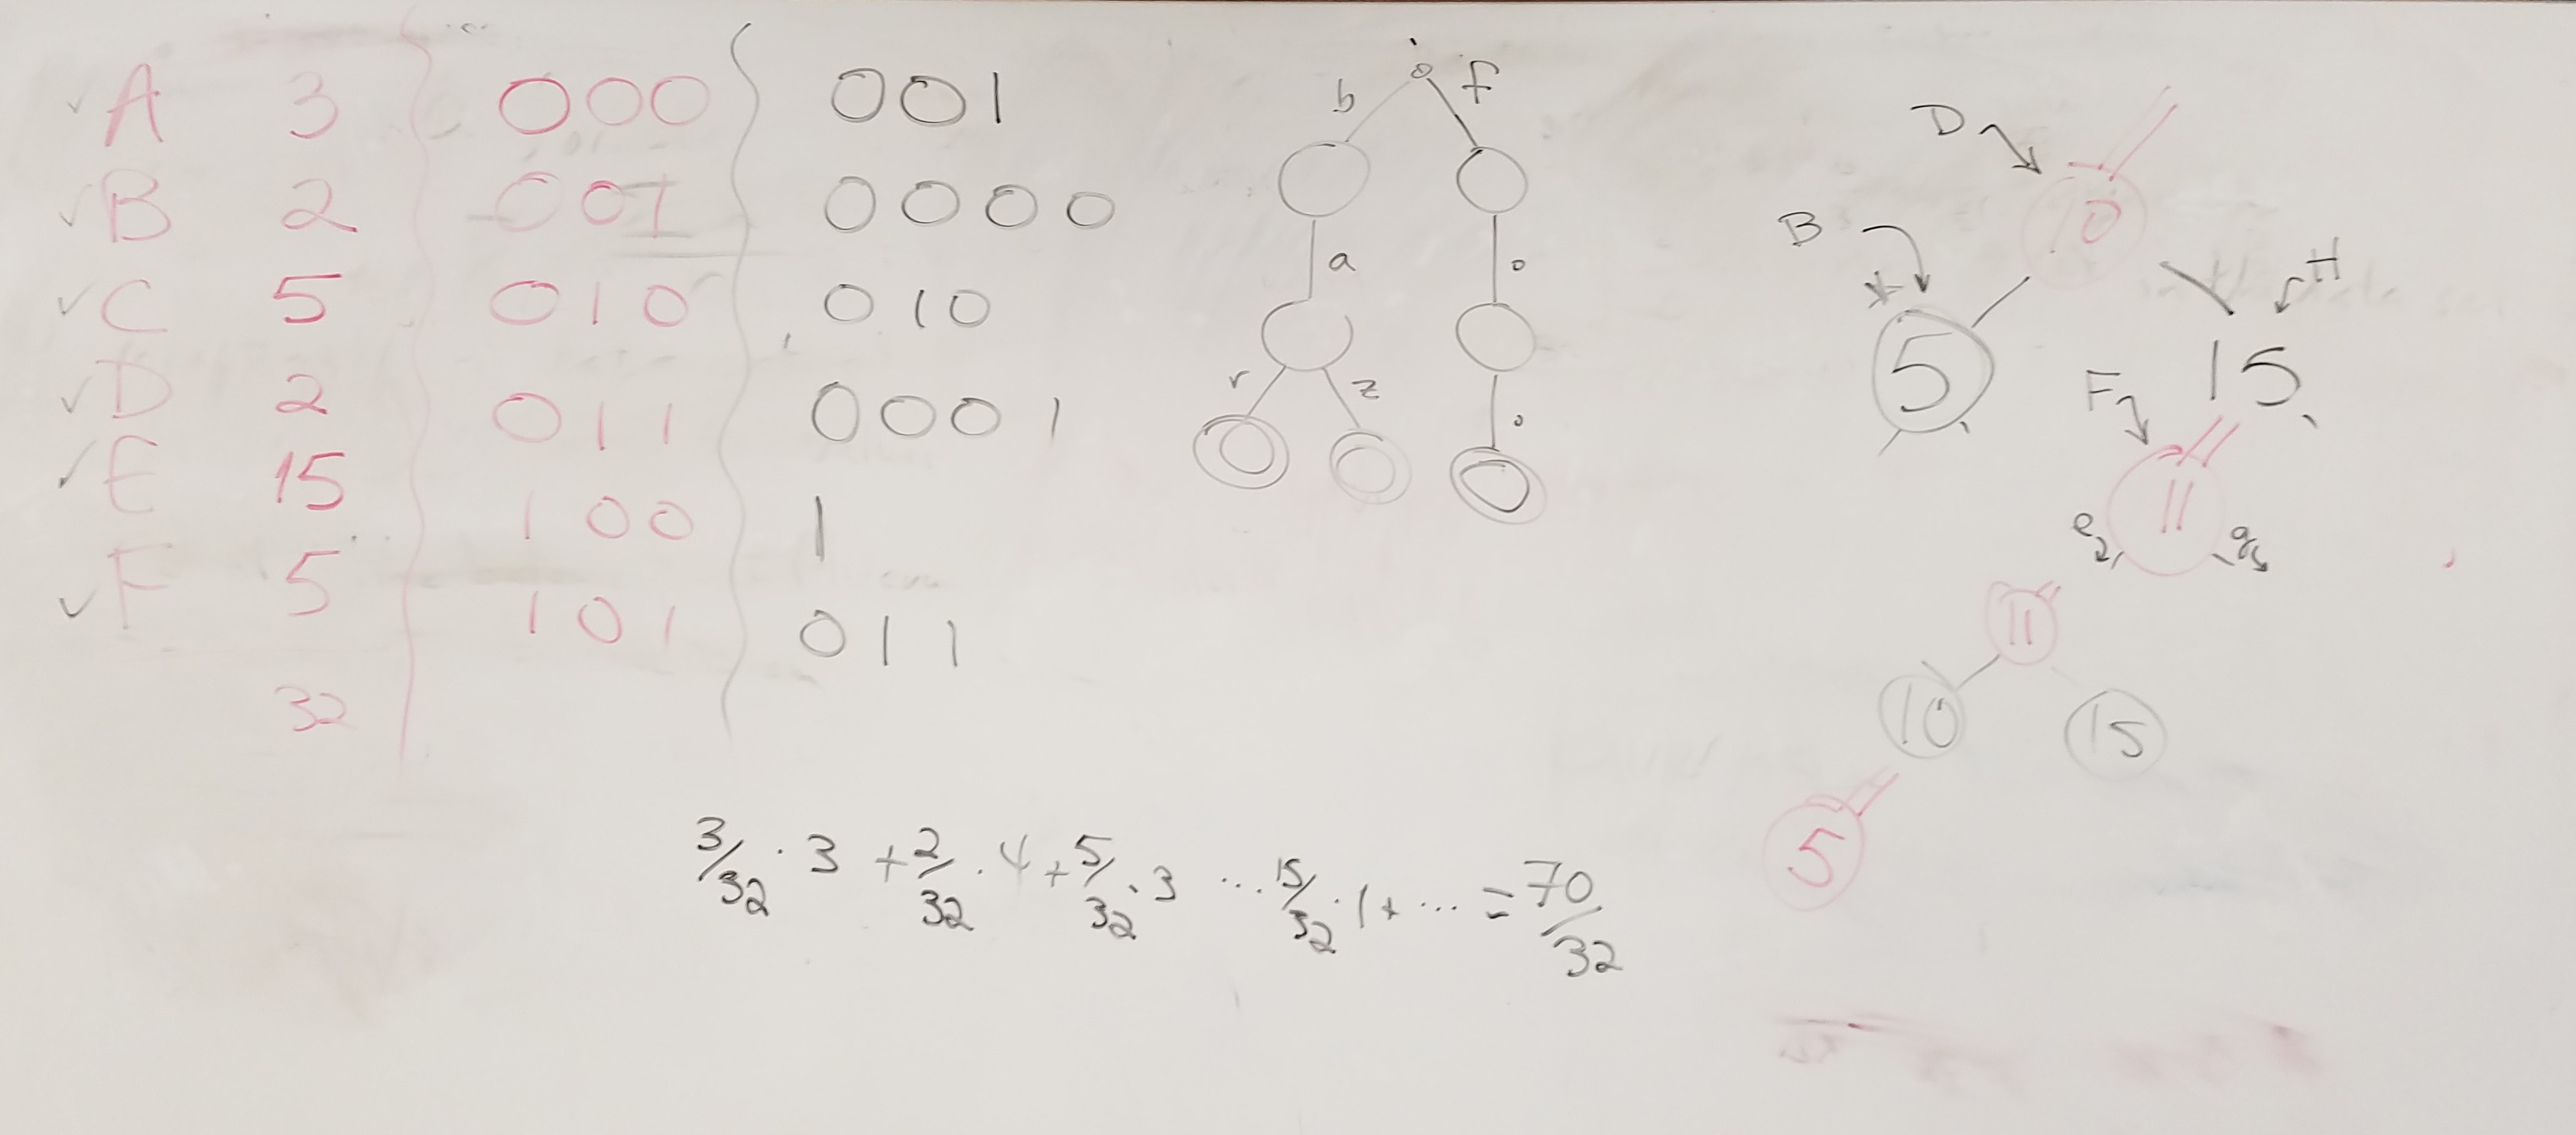 A 3 000 001
B 2 001 0000
C 5 010 010
D 2 011 0001
E 15 100 1
F 5 101 011
32
b f
a o
r z o
D
10
B
H
* 5 15
F
11
e g
11
10 15
5
3/32 · 3 + 2/32 · 4 + 5/32 · 3 ... 15/32 · 1 + ... = 70/32